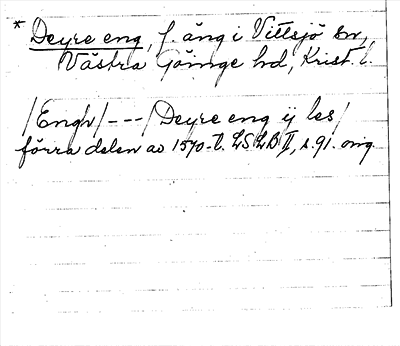 * Deyre eng, f. äng i Vittsjö sn,
Västra Göinge hd, Krist. l.
/Engh/ --- /Deyre eng ij les/
förra delen av 1570-t. LSLB II, s. 91. orig.